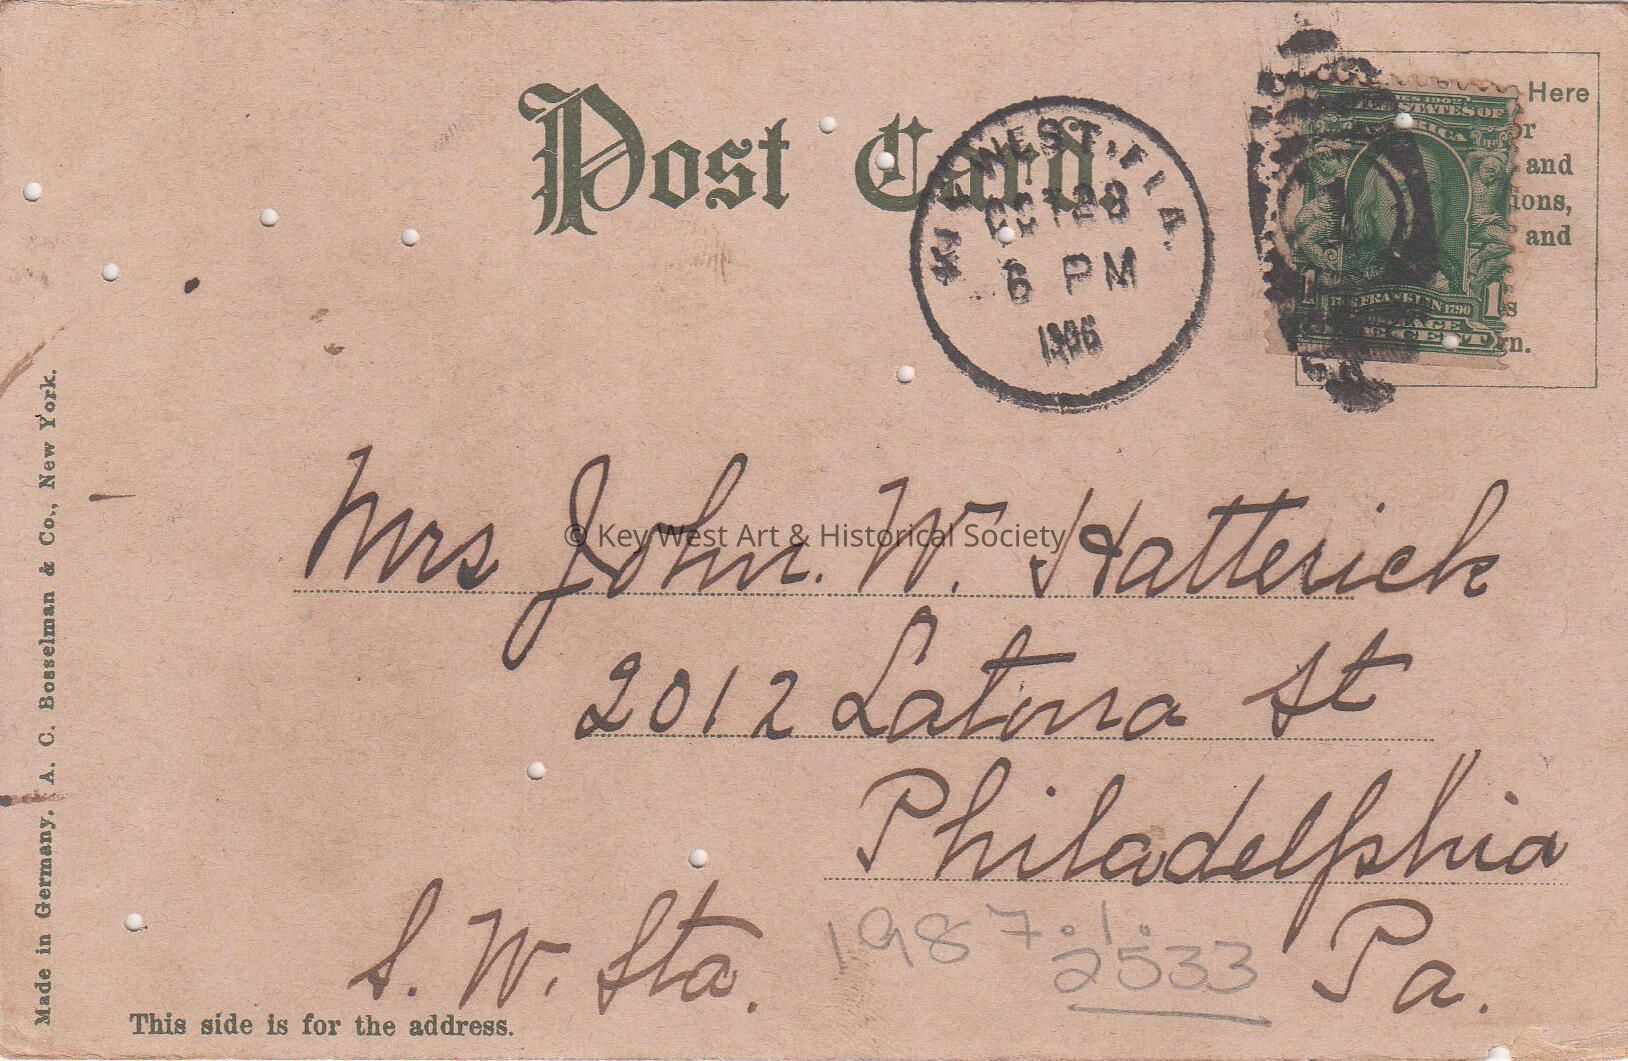 Post Card.
KEY WEST, FLA.
OCT 28
6 PM
1906
Here
and
and
SERIES 1902
STATES OF
AMERICA
1
FRANKLIN 1790
1 1
CENT
Mrs John. W. Hatterick
© Key West Art & Historical Society
2012 Latona St
Philadelphia
S. W. Sta. Pa.
1987.1.
2533
This side is for the address.
Made in Germany. A. C. Bosselman & Co., New York.